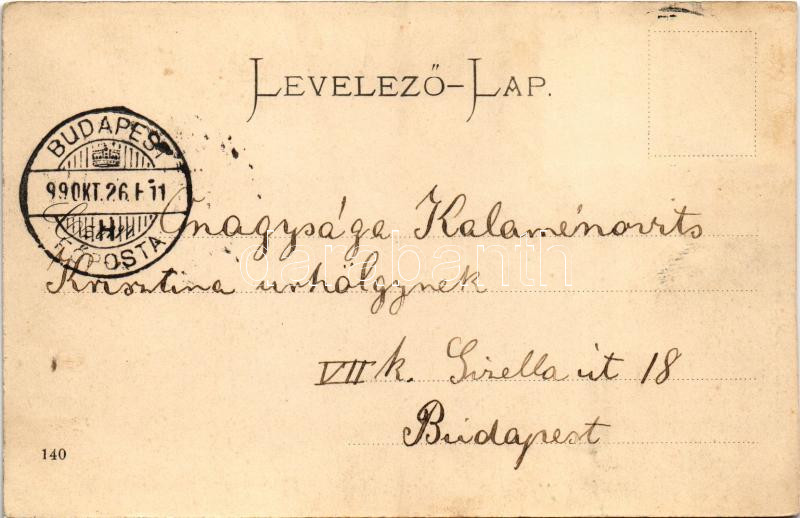 LEVELEZŐ-LAP.
BUDAPEST
99 OKT. 26.
H
FŐPOSTA
Őnagysága Kalaménovits
Krisztina urhölgynek
VII k. Gizella út 18
Budapest
140
darabanth